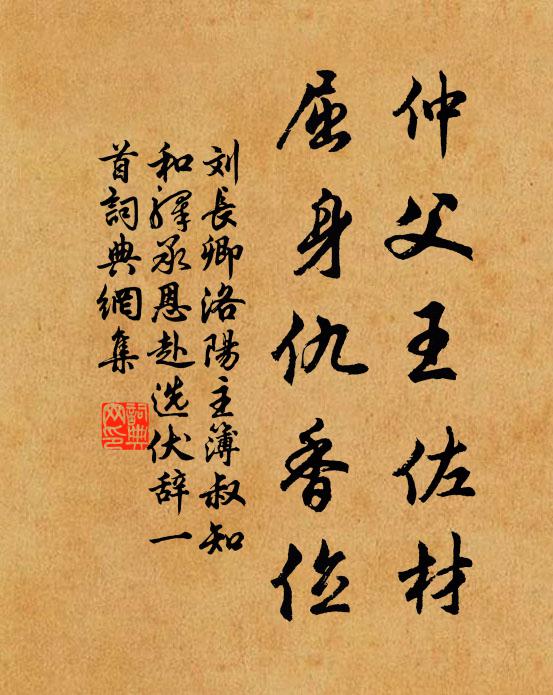 仲父王佐材
屈身仇香位
刘長卿洛陽主簿叔知
和驛承恩赴选伏辞一
首詞典網集
詞典
网印